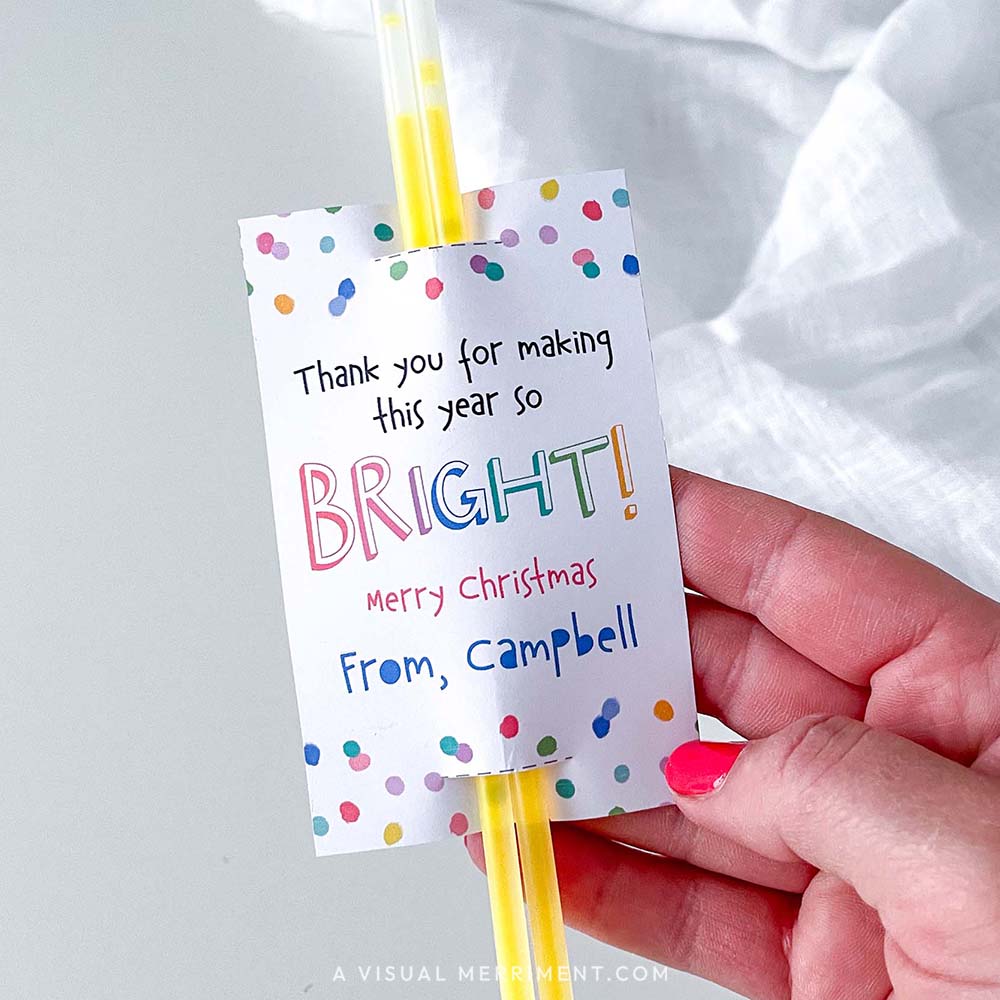 Thank you for making
this year so
BRIGHT!
Merry Christmas
From, Campbell
A VISUAL MERRIMENT.COM